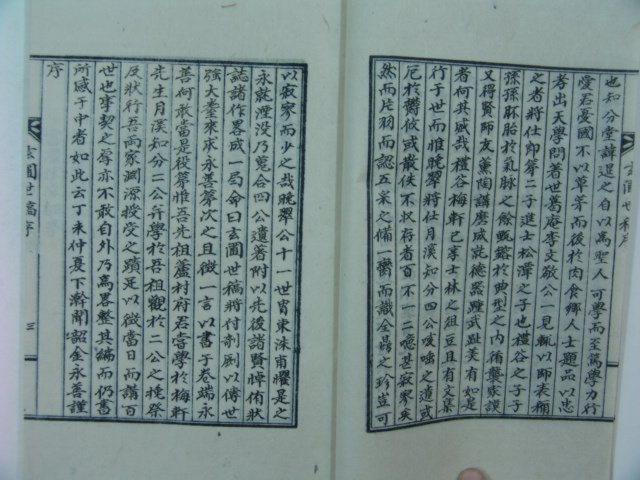 也知分堂諱選之自以爲聖人可學而至篤學力行
愛君憂國不以草芧而後於肉食鄕人士題品以忠
孝出天學問著世葛庵李文敬公一見輒以師表稱
之者將仕郎第二子進士松潭之子也禮谷之子子
孫孫胚胎於氣脉之餘甄鎔於典型之內循襲家謨
又得賢師友薰陶講磨咸能德器踵武趾美有如是
者何其盛哉禮谷梅軒已享士林之俎豆且有文集
行于世而惟晩翠將仕月溪知分四公咳唾之遺或
厄於鬱攸或散佚不收存者百不一二噫甚寂寥矣
然而片羽而認五采之備一臠而識全鼎之珍豈可
以寂寥而少之哉晩翠公十一世胄東洙甫懼是之
永就湮沒乃蒐合四公遺著附以先後諸賢悼侑狀
誌諸作畧成一局命曰玄圃世稿將付剞劂以傳世
强大臺來求永善第次之且徵一言以書于卷端永
善何敢當是役第惟吾先祖蘆村府君嘗學於梅軒
先生月溪知分二公幷學於吾祖觀於二公之輓祭
及狀行吾兩家淵源授受之蹟足以徵當日而講百
世也事契之厚亦不敢自外乃爲畧整其編而仍書
所感于中者如此云丁未仲夏下澣聞韶金永善謹
序
玄圃世稿序
三